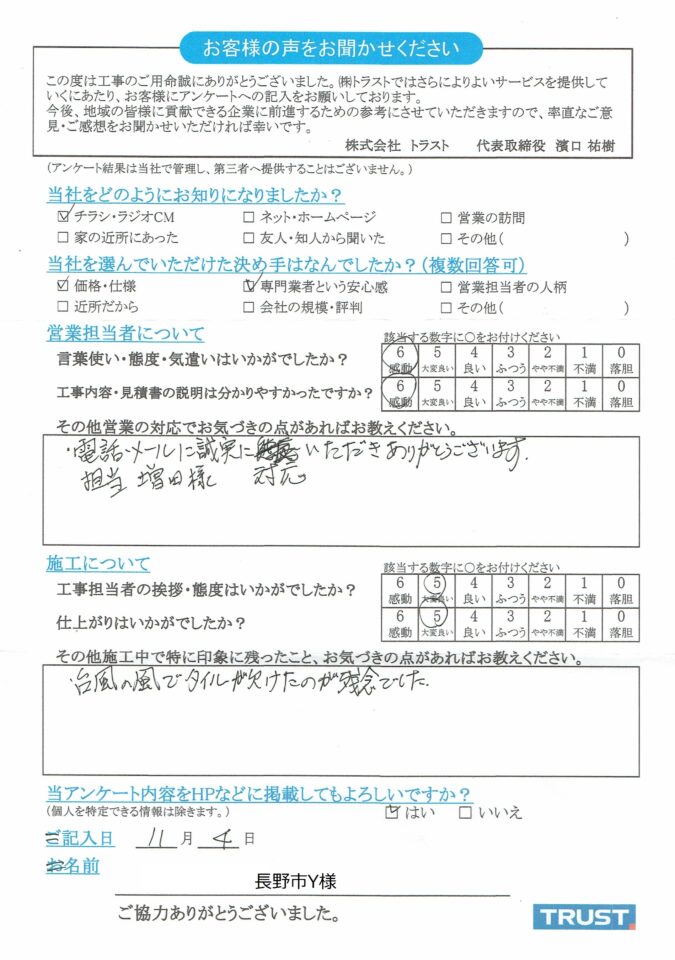 お客様の声をお聞かせください
この度は工事のご用命誠にありがとうございました。㈱トラストではさらによりよいサービスを提供して
いくにあたり、お客様にアンケートへの記入をお願いしております。
今後、地域の皆様に貢献できる企業に前進するための参考にさせていただきますので、率直なご意
見・ご感想をお聞かせいただければ幸いです。
株式会社 トラスト 代表取締役 濱口 祐樹
(アンケート結果は当社で管理し、第三者へ提供することはございません。)
当社をどのようにお知りになりましたか？
☑ チラシ・ラジオCM □ ネット・ホームページ □ 営業の訪問
□ 家の近所にあった □ 友人・知人から聞いた □ その他( )
当社を選んでいただけた決め手はなんでしたか？(複数回答可)
☑ 価格・仕様 ☑ 専門業者という安心感 □ 営業担当者の人柄
□ 近所だから □ 会社の規模・評判 □ その他( )
営業担当者について 該当する数字に○をお付けください
言葉使い・態度・気遣いはいかがでしたか？ 6 5 4 3 2 1 0
感動 大変良い 良い ふつう やや不満 不満 落胆
工事内容・見積書の説明は分かりやすかったですか？ 6 5 4 3 2 1 0
感動 大変良い 良い ふつう やや不満 不満 落胆
その他営業の対応でお気づきの点があればお教えください。
・電話・メールに誠実に いただきありがとうございます。
担当 増田様 対応
施工について 該当する数字に○をお付けください
工事担当者の挨拶・態度はいかがでしたか？ 6 5 4 3 2 1 0
感動 大変良い 良い ふつう やや不満 不満 落胆
仕上がりはいかがでしたか？ 6 5 4 3 2 1 0
感動 大変良い 良い ふつう やや不満 不満 落胆
その他施工中で特に印象に残ったこと、お気づきの点があればお教えください。
・台風の風でタイルが欠けたのが残念でした。
当アンケート内容をHPなどに掲載してもよろしいですか？
(個人を特定できる情報は除きます。) ☑ はい □ いいえ
ご記入日 11 月 4 日
お名前
長野市Y様
ご協力ありがとうございました。
TRUST